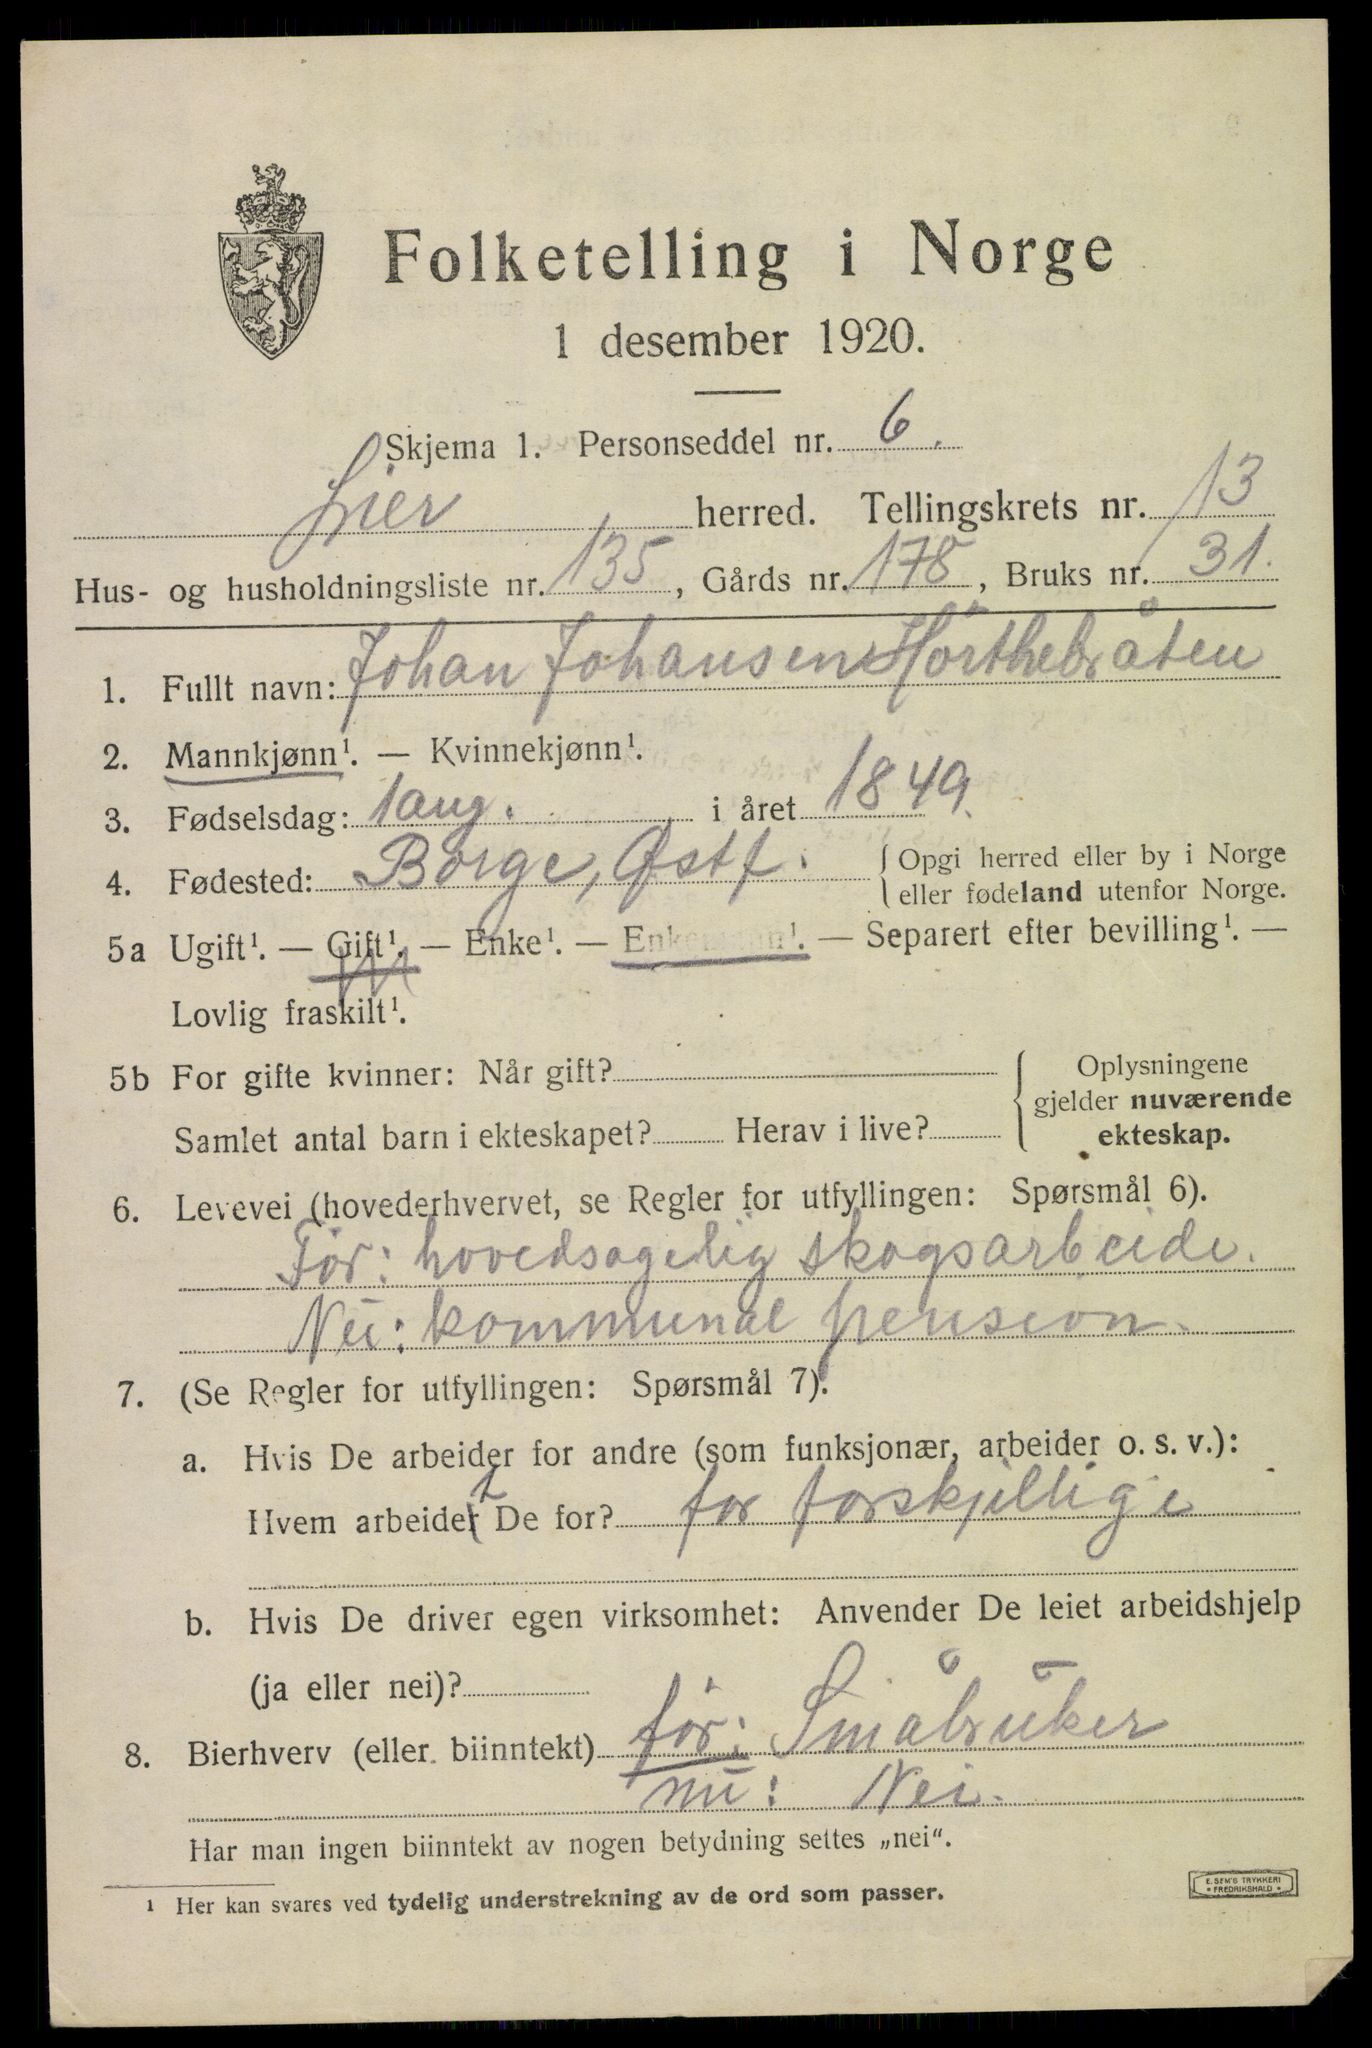 Folketelling i Norge
1 desember 1920.
Skjema 1. Personseddel nr. 6.
Lier herred. Tellingskrets nr. 13
Hus- og husholdningsliste nr. 135, Gårds nr. 178, Bruks nr. 31.
1. Fullt navn: Johan Johansen Hørthebråten
2. Mannkjønn¹. — Kvinnekjønn¹.
3. Fødselsdag: 1 aug. i året 1849.
4. Fødested: Borge, Østf. { Opgi herred eller by i Norge
eller fødeland utenfor Norge.
5a Ugift¹. — Gift¹. — Enke¹. — Enkemann¹. — Separert efter bevilling¹. —
Lovlig fraskilt¹.
5b For gifte kvinner: Når gift?
Samlet antal barn i ekteskapet? Herav i live?
{ Oplysningene
gjelder nuværende
ekteskap.
6. Levevei (hovederhvervet, se Regler for utfyllingen: Spørsmål 6).
Før: hovedsagelig skogsarbeide.
Nu: kommunal pension.
7. (Se Regler for utfyllingen: Spørsmål 7).
a. Hvis De arbeider for andre (som funksjonær, arbeider o. s. v.):
Hvem arbeider De for? for forskjellige
b. Hvis De driver egen virksomhet: Anvender De leiet arbeidshjelp
(ja eller nei)?
8. Bierhverv (eller biinntekt) før: Småbruker
nu: Nei.
Har man ingen biinntekt av nogen betydning settes „nei“.
¹ Her kan svares ved tydelig understrekning av de ord som passer.
E. SEM'S TRYKKERI
FREDRIKSHALD